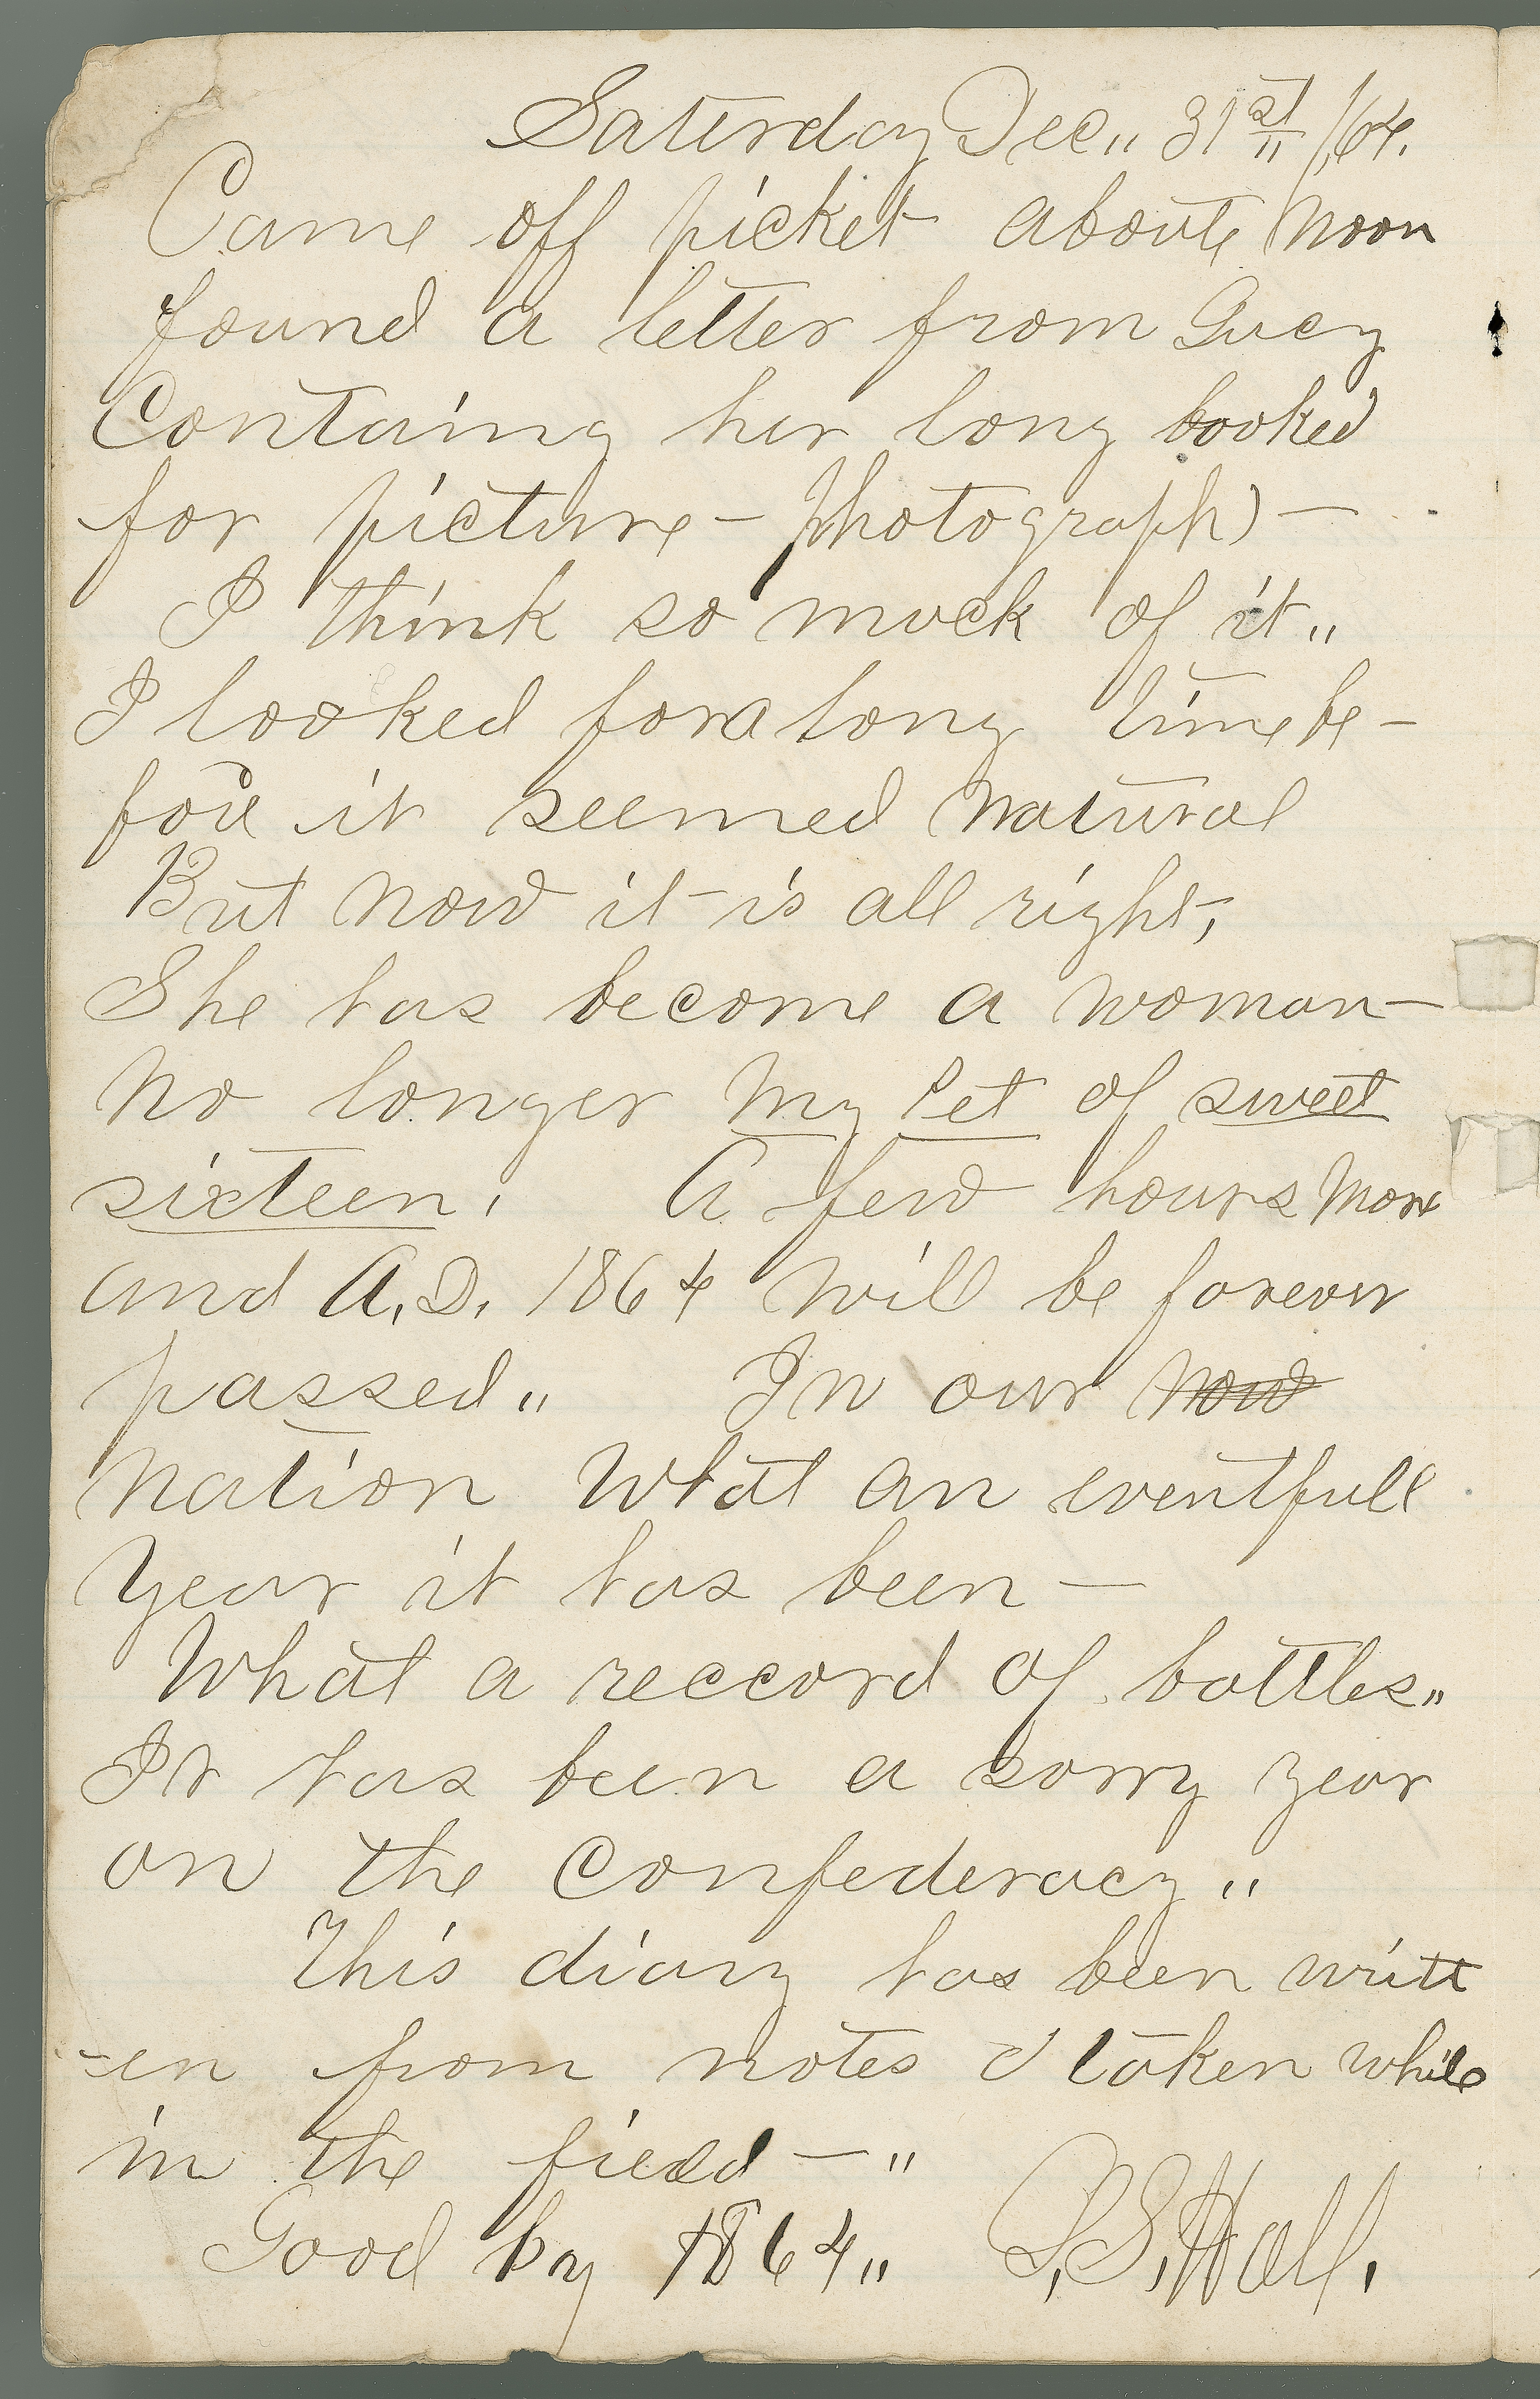 Saturday Dec,, 31st /64.
Came off picket aboute noon
found a letter from Lucy
Containg her long looked
for picture - photograph) -
I think so much of it,,
I looked for a long time be-
fore it seemed natural
But now it is all right,
She has become a woman -
no longer my Pet of sweet
sixteen, A few hours more
and A.D. 1864 will be forever
passed,, In our now
nation What an eventfull
year it has been -
What a reccord of battles,,
It has been a sorry year
on the Confederacy,,
This diary has been writt
-en from notes taken while
in the field - ,,
Good by 1864,, S. Hall.